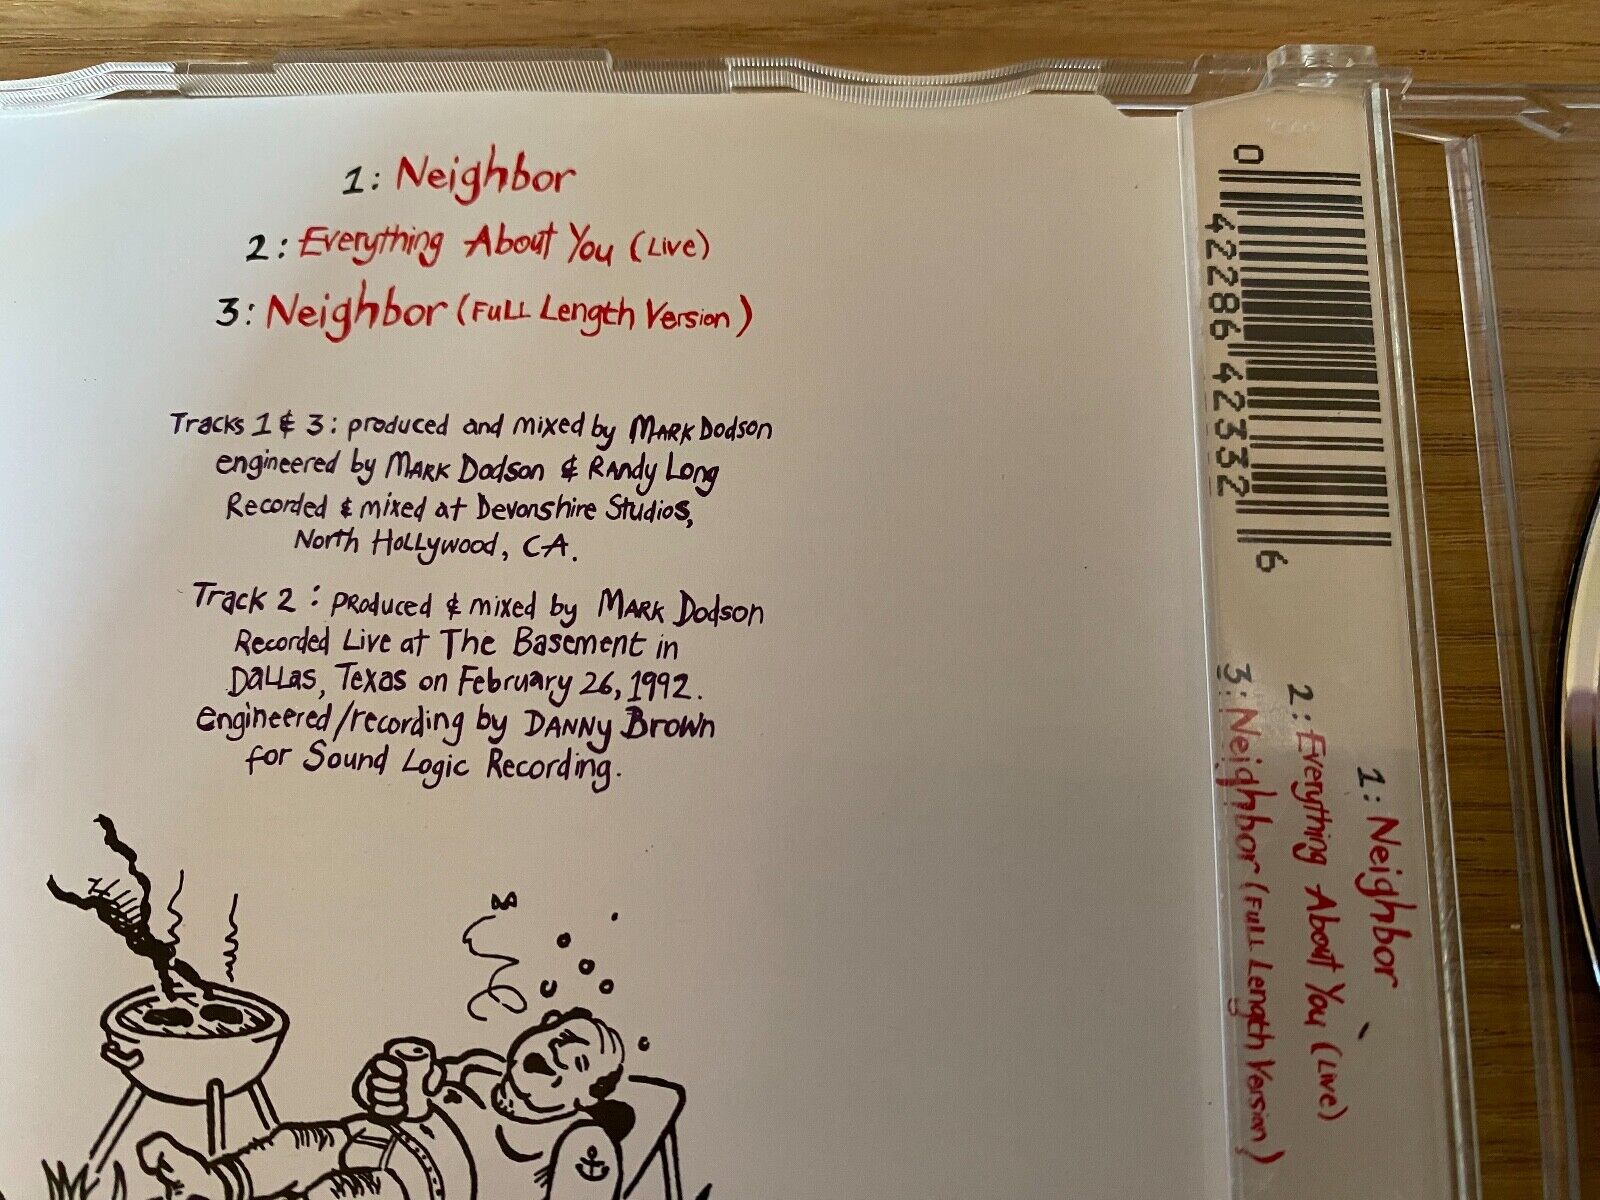 1: Neighbor
2: Everything About You (Live)
3: Neighbor (Full Length Version)
Tracks 1 & 3: produced and mixed by Mark Dodson
engineered by Mark Dodson & Randy Long
Recorded & mixed at Devonshire Studios,
North Hollywood, CA.
Track 2: produced & mixed by Mark Dodson
Recorded Live at The Basement in
Dallas, Texas on February 26, 1992.
engineered/recording by Danny Brown
for Sound Logic Recording.
0 42286 42332 6
1: Neighbor
2: Everything About You (Live)
3: Neighbor (Full Length Version)